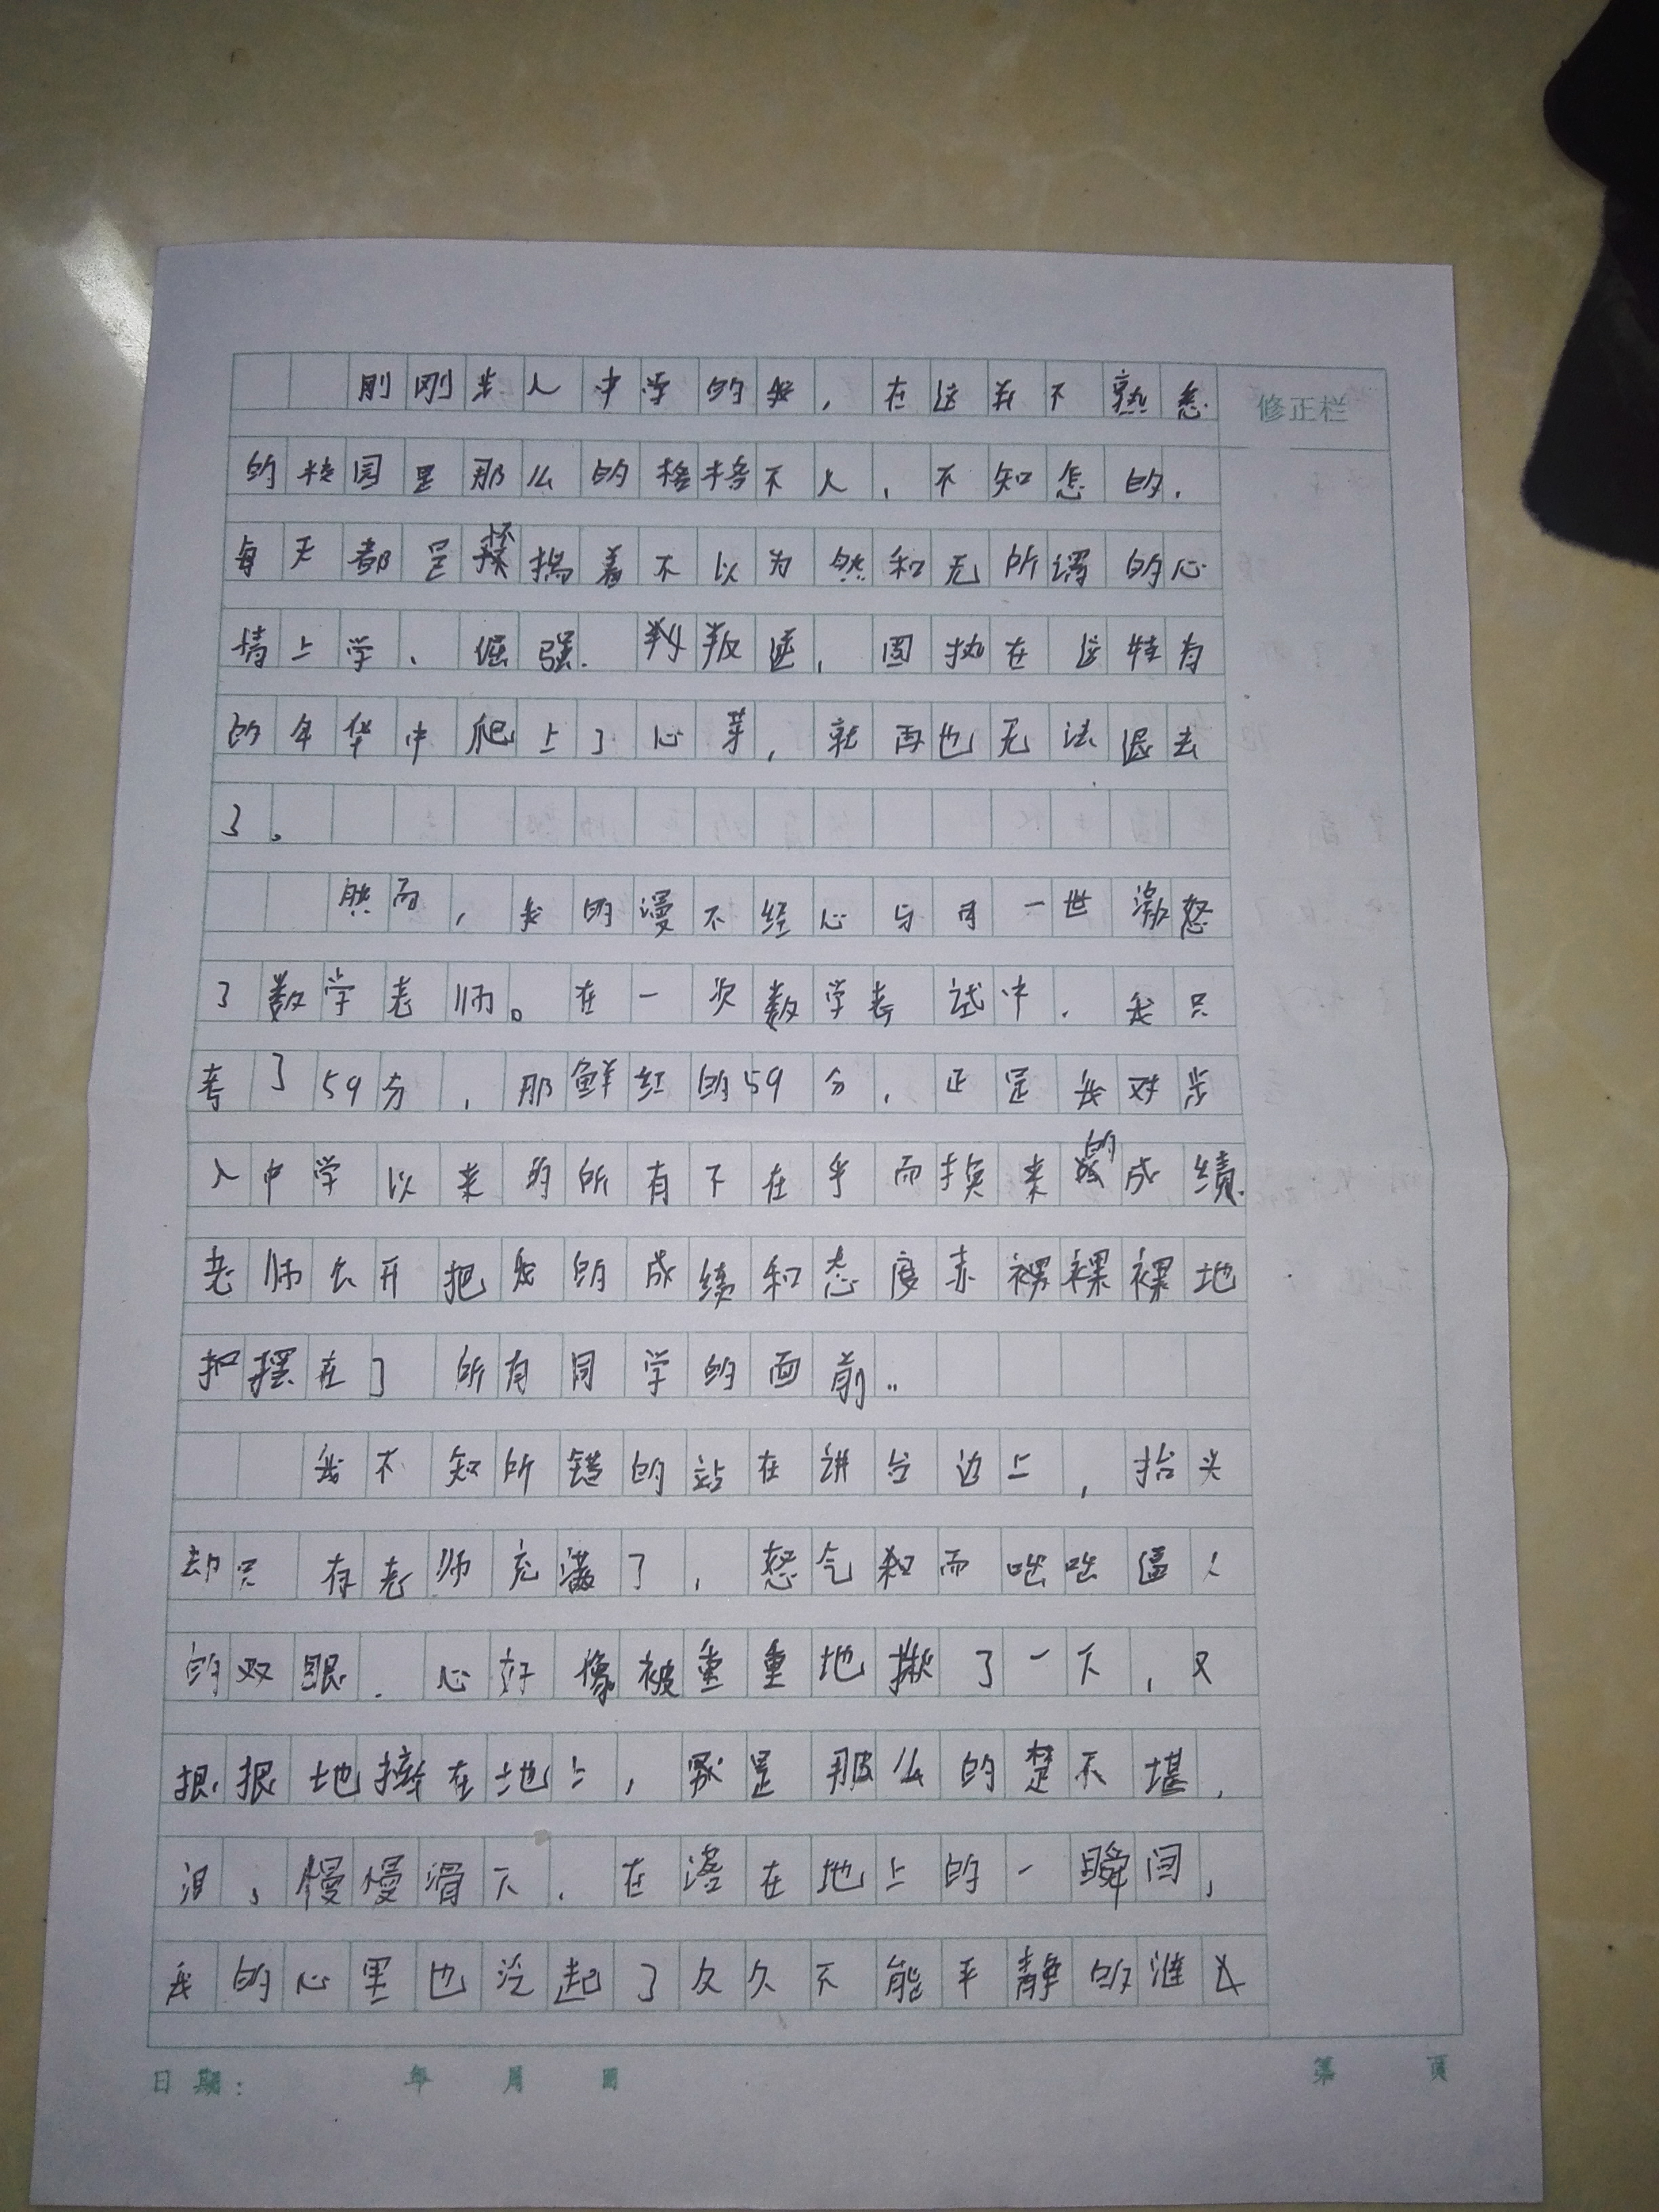 刚刚步入中学的我，在这并不熟悉
修正栏
的校园里那么的格格不入，不知怎的，
每天都是怀揣着不以为然和无所谓的心
情上学、倔强．叛逆，固执在这特有
的年华中爬上了心芽，就再也无法退去
了。
然而，我的漫不经心与目一世激怒
了数学老师。在一次数学考试中．我只
考了59分，那鲜红的59分，正是我对步
入中学以来的所有不在乎而换来的成绩．
老师公开把我的成绩和态度赤裸裸裸地
摆在了所有同学的面前..
我不知所错的站在讲台边上，抬头
却只有老师充满了，怒气和而咄咄逼人
的双眼．心好像被重重地揪了一下，又
狠狠地摔在地上，是那么的楚不堪，
泪，慢慢滑下．在落在地上的一瞬间，
我的心里也泛起了久久不能平静的
日期： 年 月 日
第 页